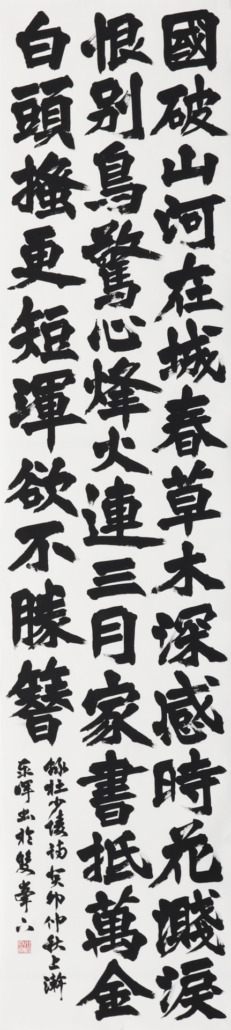 國破山河在城春草木深感時花濺淚
恨别鳥驚心烽火連三月家書抵萬金
白頭搔更短渾欲不勝簪
錄杜少陵詩癸卯仲秋上澣
東暉書於雙峯下